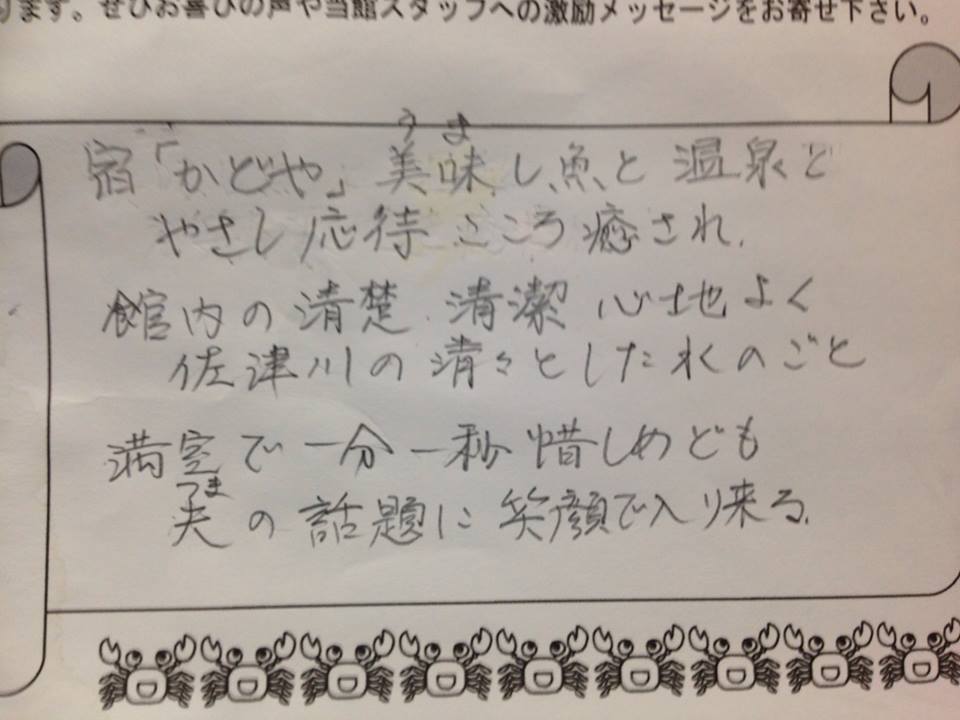 ります。ぜひお喜びの声や当館スタッフへの激励メッセージをお寄せ下さい。
うま
宿「かどや」美味し魚と温泉と
やさし応待こころ癒され
館内の清楚 清潔 心地よく
佐津川の清々とした水のごと
満室で一分一秒惜しめども
つま
夫の話題に笑顔で入り来る